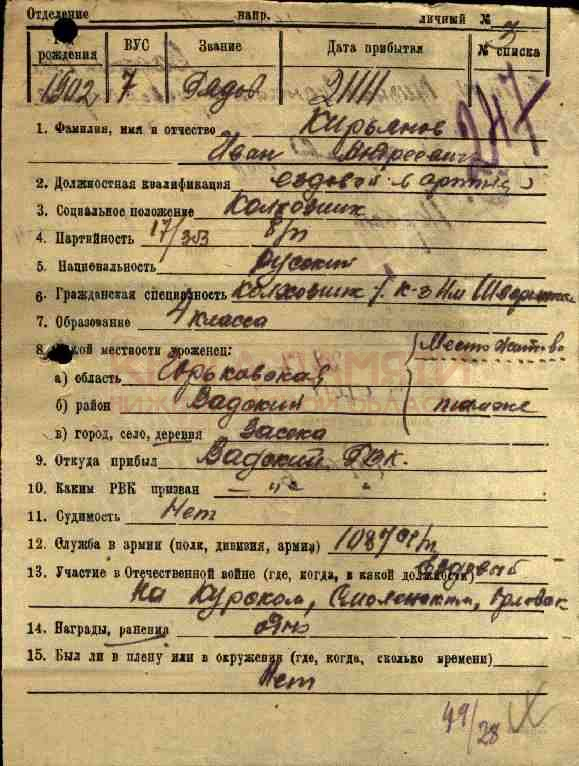 Отделение напр. личный №
рождения ВУС Звание Дата прибытия № списка
1902 7 Рядов 7
247
1. Фамилия, имя и отчество Кирьянов
Иван Андреевич
2. Должностная квалификация ездовой
3. Социальное положение Колхозник
4. Партийность б/п
5. Национальность Русский
6. Гражданская специальность колхозник к-з Им
7. Образование 4 класса
8. Какой местности уроженец: Место жит-во
а) область Горьковская
б) район Вадский
в) город, село, деревня Засека
9. Откуда прибыл Вадский РВК.
10. Каким РВК призван — "— "
11. Судимость Нет
12. Служба в армии (полк, дивизия, армия) 1087
13. Участие в Отечественной войне (где, когда, в какой должности) ездовый
На Курском, Смоленском,
14. Награды, ранения одно
15. Был ли в плену или в окружении (где, когда, сколько времени)
Нет
49/28